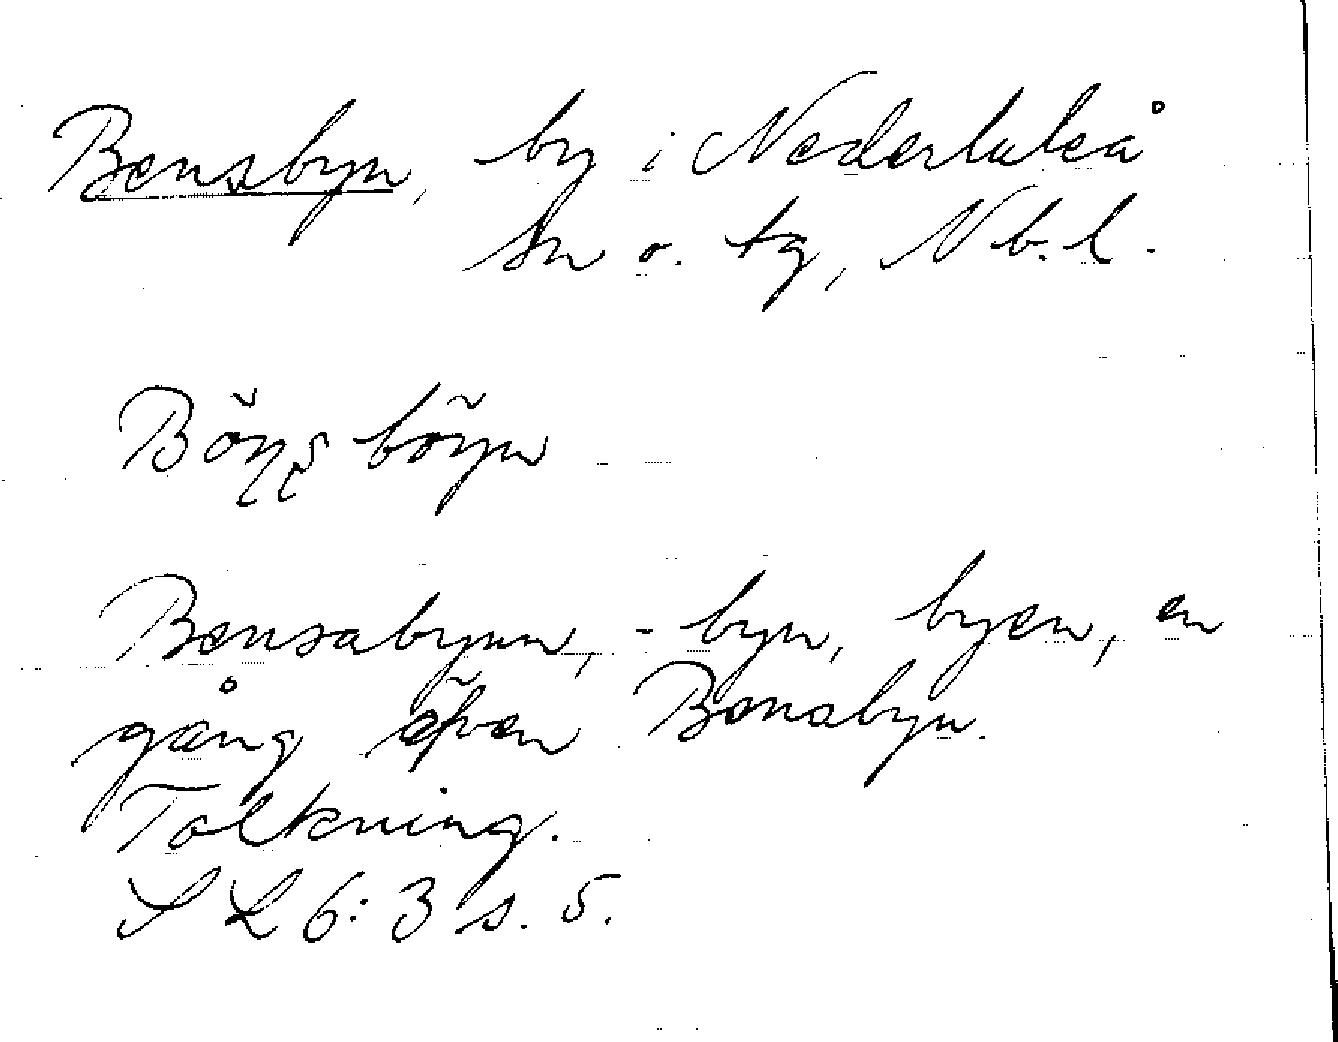 Bensbyn, by i Nederluleå
sn o. tg, Nb.l.
Bensabynn, -byn, byen, en
gång även Bonsbyn.
Tolkning.
SL 6:3 s. 5.